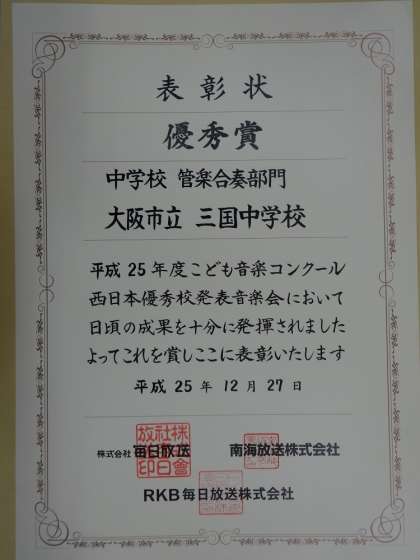 表彰状
優秀賞
中学校 管楽合奏部門
大阪市立 三国中学校
平成25年度こども音楽コンクール
西日本優秀校発表音楽会において
日頃の成果を十分に発揮されました
よってこれを賞しここに表彰いたします
平成 25 年 12 月 27 日
株式会社 毎日放送
南海放送株式会社
RKB毎日放送株式会社